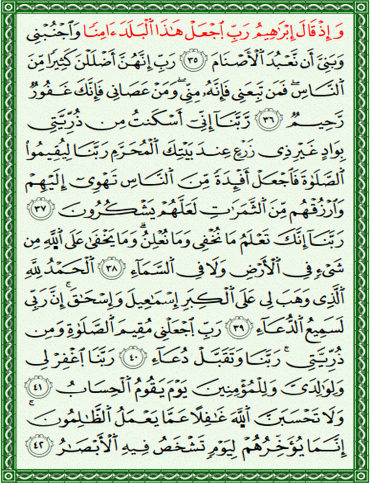 وَإِذْ قَالَ إِبْرَٰهِيمُ رَبِّ ٱجْعَلْ هَٰذَا ٱلْبَلَدَ ءَامِنًا وَٱجْنُبْنِى
وَبَنِىَّ أَن نَّعْبُدَ ٱلْأَصْنَامَ ٣٥ رَبِّ إِنَّهُنَّ أَضْلَلْنَ كَثِيرًا مِّنَ
ٱلنَّاسِ ۖ فَمَن تَبِعَنِى فَإِنَّهُۥ مِنِّى ۖ وَمَنْ عَصَانِى فَإِنَّكَ غَفُورٌ
رَّحِيمٌ ٣٦ رَّبَّنَآ إِنِّىٓ أَسْكَنتُ مِن ذُرِّيَّتِى
بِوَادٍ غَيْرِ ذِى زَرْعٍ عِندَ بَيْتِكَ ٱلْمُحَرَّمِ رَبَّنَا لِيُقِيمُوا۟
ٱلصَّلَوٰةَ فَٱجْعَلْ أَفْـِٔدَةً مِّنَ ٱلنَّاسِ تَهْوِىٓ إِلَيْهِمْ
وَٱرْزُقْهُم مِّنَ ٱلثَّمَرَٰتِ لَعَلَّهُمْ يَشْكُرُونَ ٣٧
رَبَّنَآ إِنَّكَ تَعْلَمُ مَا نُخْفِى وَمَا نُعْلِنُ ۗ وَمَا يَخْفَىٰ عَلَى ٱللَّهِ مِن
شَىْءٍ فِى ٱلْأَرْضِ وَلَا فِى ٱلسَّمَآءِ ٣٨ ٱلْحَمْدُ لِلَّهِ
ٱلَّذِى وَهَبَ لِى عَلَى ٱلْكِبَرِ إِسْمَٰعِيلَ وَإِسْحَٰقَ ۚ إِنَّ رَبِّى
لَسَمِيعُ ٱلدُّعَآءِ ٣٩ رَبِّ ٱجْعَلْنِى مُقِيمَ ٱلصَّلَوٰةِ وَمِن
ذُرِّيَّتِى ۚ رَبَّنَا وَتَقَبَّلْ دُعَآءِ ٤٠ رَبَّنَا ٱغْفِرْ لِى
وَلِوَٰلِدَىَّ وَلِلْمُؤْمِنِينَ يَوْمَ يَقُومُ ٱلْحِسَابُ ٤١
وَلَا تَحْسَبَنَّ ٱللَّهَ غَٰفِلًا عَمَّا يَعْمَلُ ٱلظَّٰلِمُونَ ۚ
إِنَّمَا يُؤَخِّرُهُمْ لِيَوْمٍ تَشْخَصُ فِيهِ ٱلْأَبْصَٰرُ ٤٢